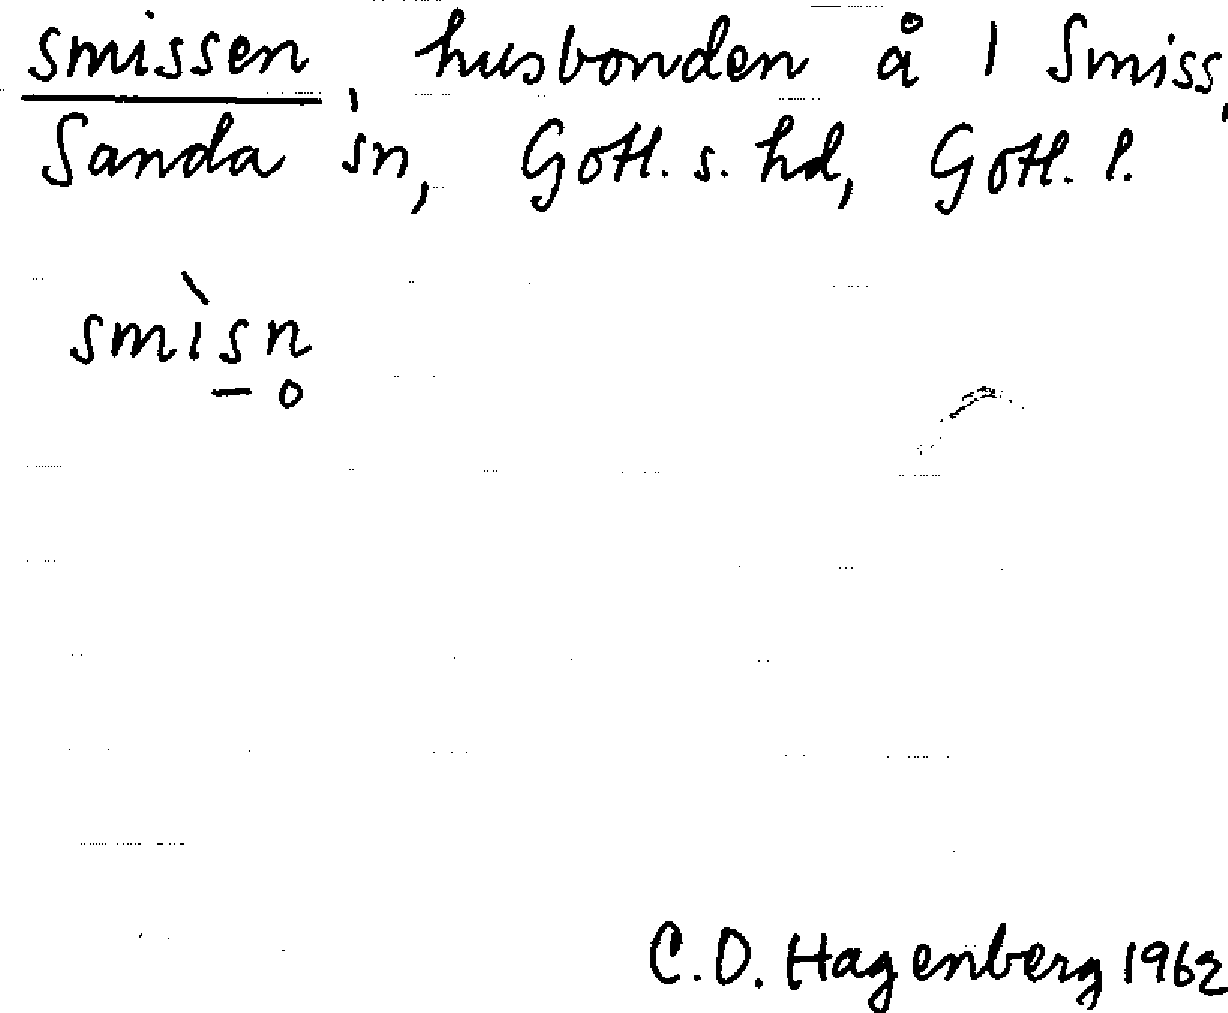 smissen, husbonden å 1 Smiss,
Sanda sn, Gotl. s. hd, Gotl. l.
smìs̱n̥
C.O. Hagenberg 1962